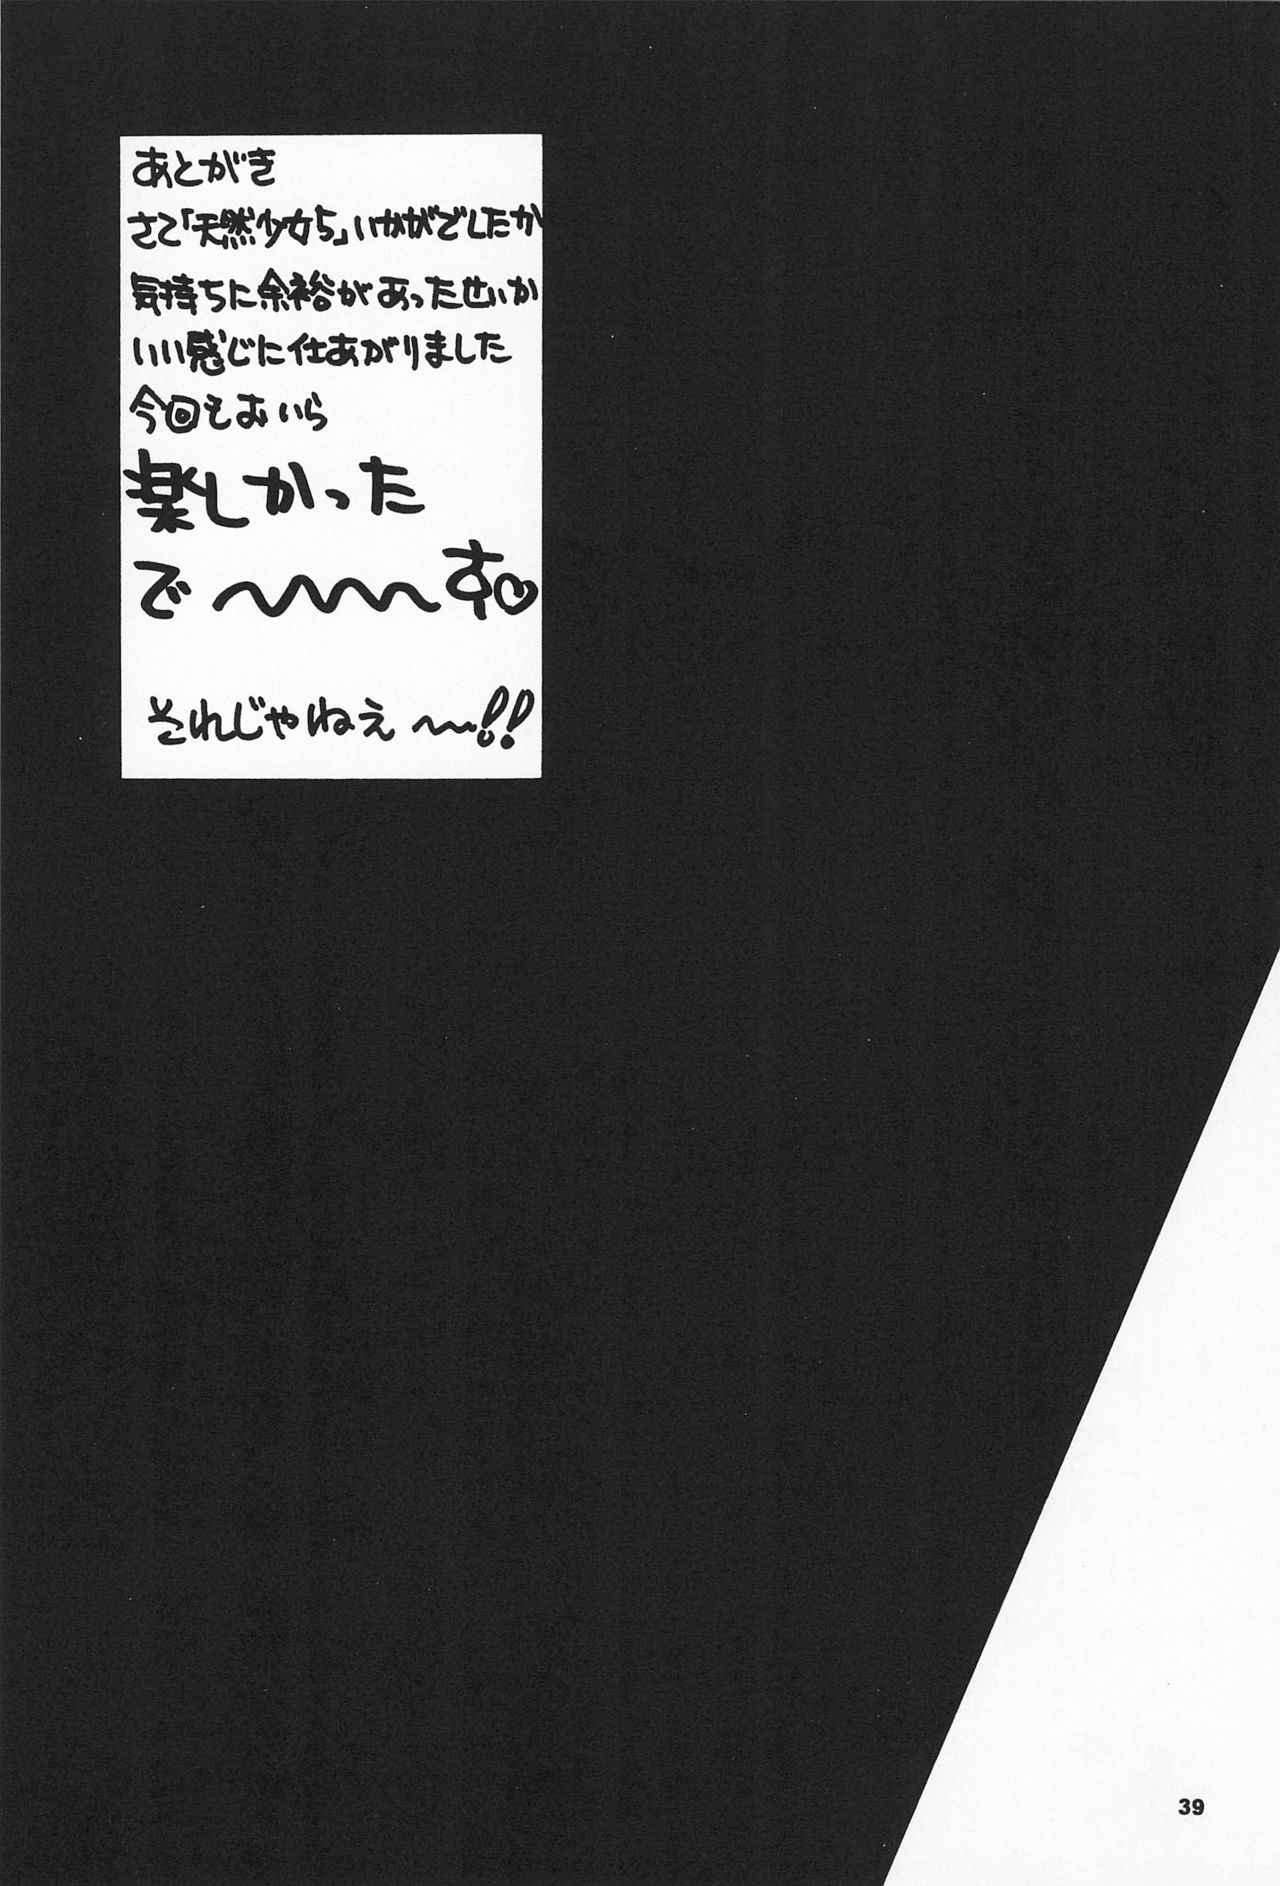 あとがき
さて「天然少女5」いかがでしたか
気持ちに余裕があったせいか
いい感じに仕あがりました
今回もおいら
楽しかった
で〜〜〜す♡
それじゃねぇ〜!!
39